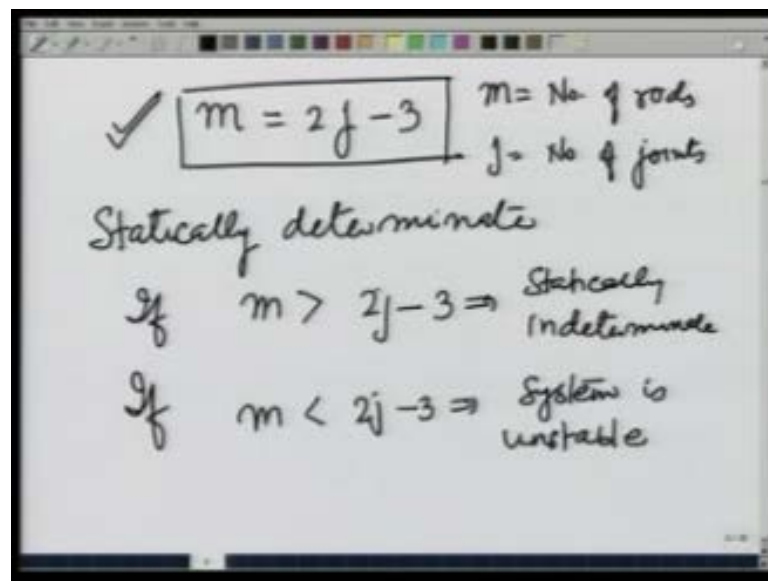 m = 2j - 3
m = No of rods
j = No of joints
Statically determinate
If m > 2j - 3 ⇒ Statically Indeterminate
If m < 2j - 3 ⇒ System is unstable